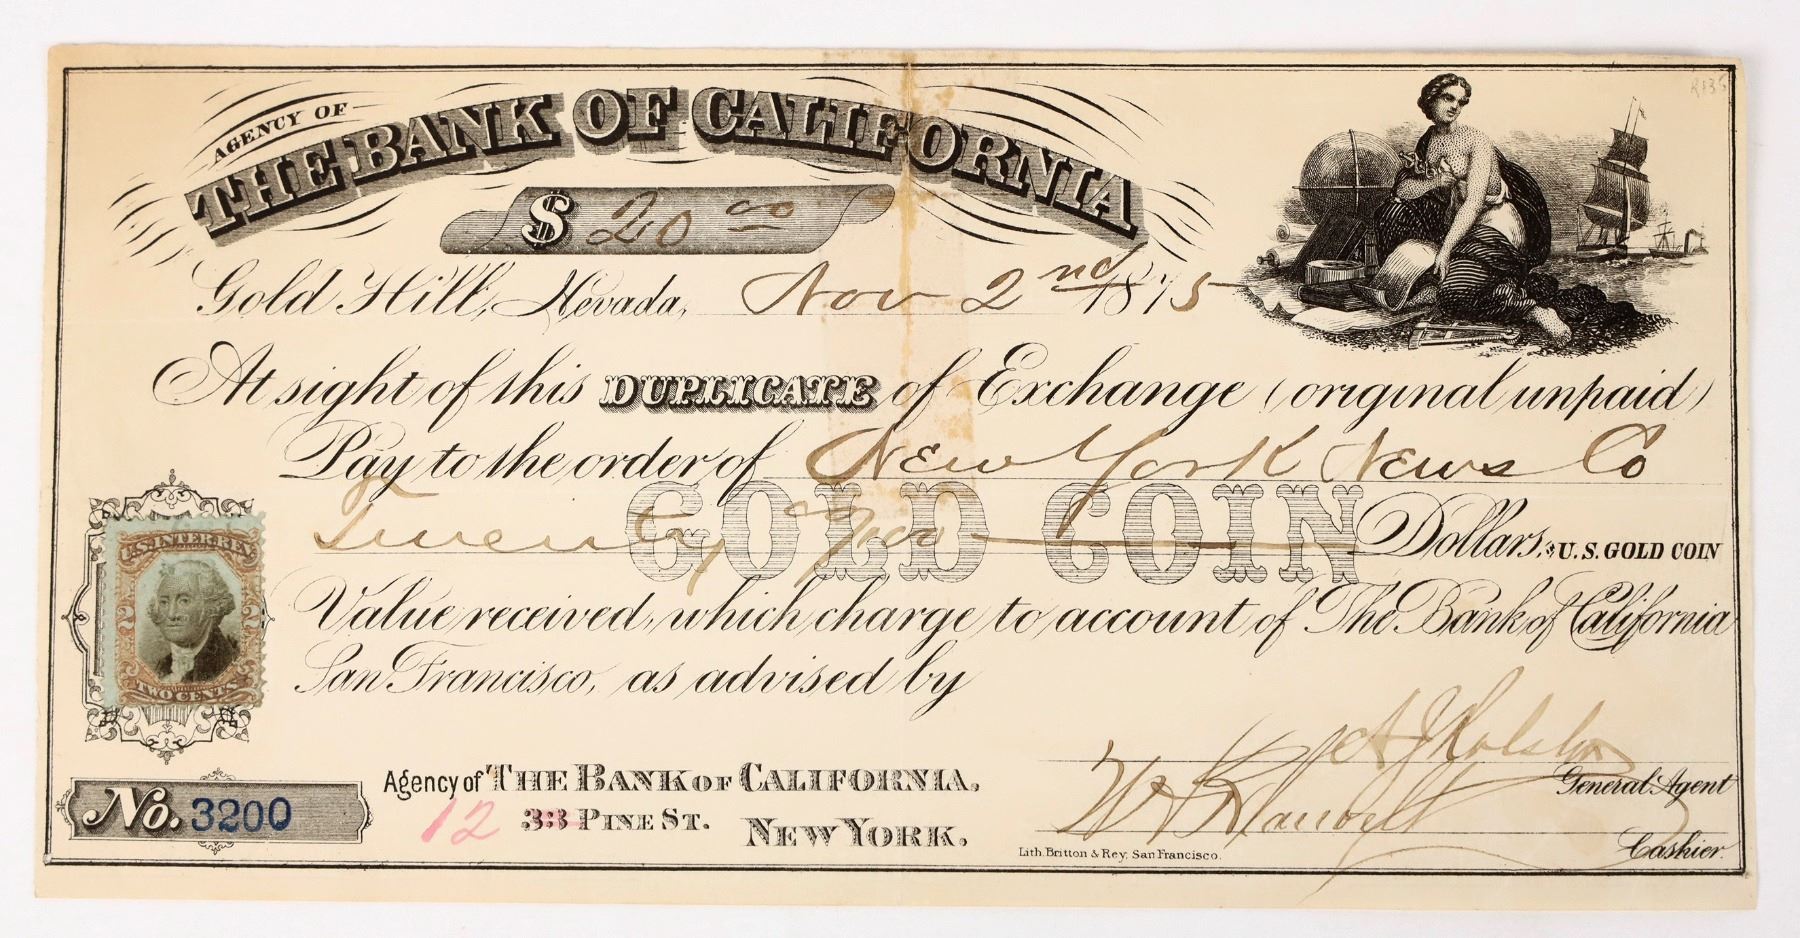 R135
AGENCY OF
THE BANK OF CALIFORNIA
$ 20 00
Gold Hill, Nevada, Nov 2nd 1875
At sight of this DUPLICATE of Exchange (original unpaid)
Pay to the order of New York News Co
GOLD COIN
Twenty 00/100 Dollars, U.S. GOLD COIN
Value received, which charge to account of The Bank of California
San Francisco, as advised by
U.S. INTER. REV.
2 2
TWO CENTS
General Agent
Agency of THE BANK OF CALIFORNIA,
No. 3200
12 33 PINE ST. NEW YORK.
Cashier.
Lith. Britton & Rey. San Francisco.